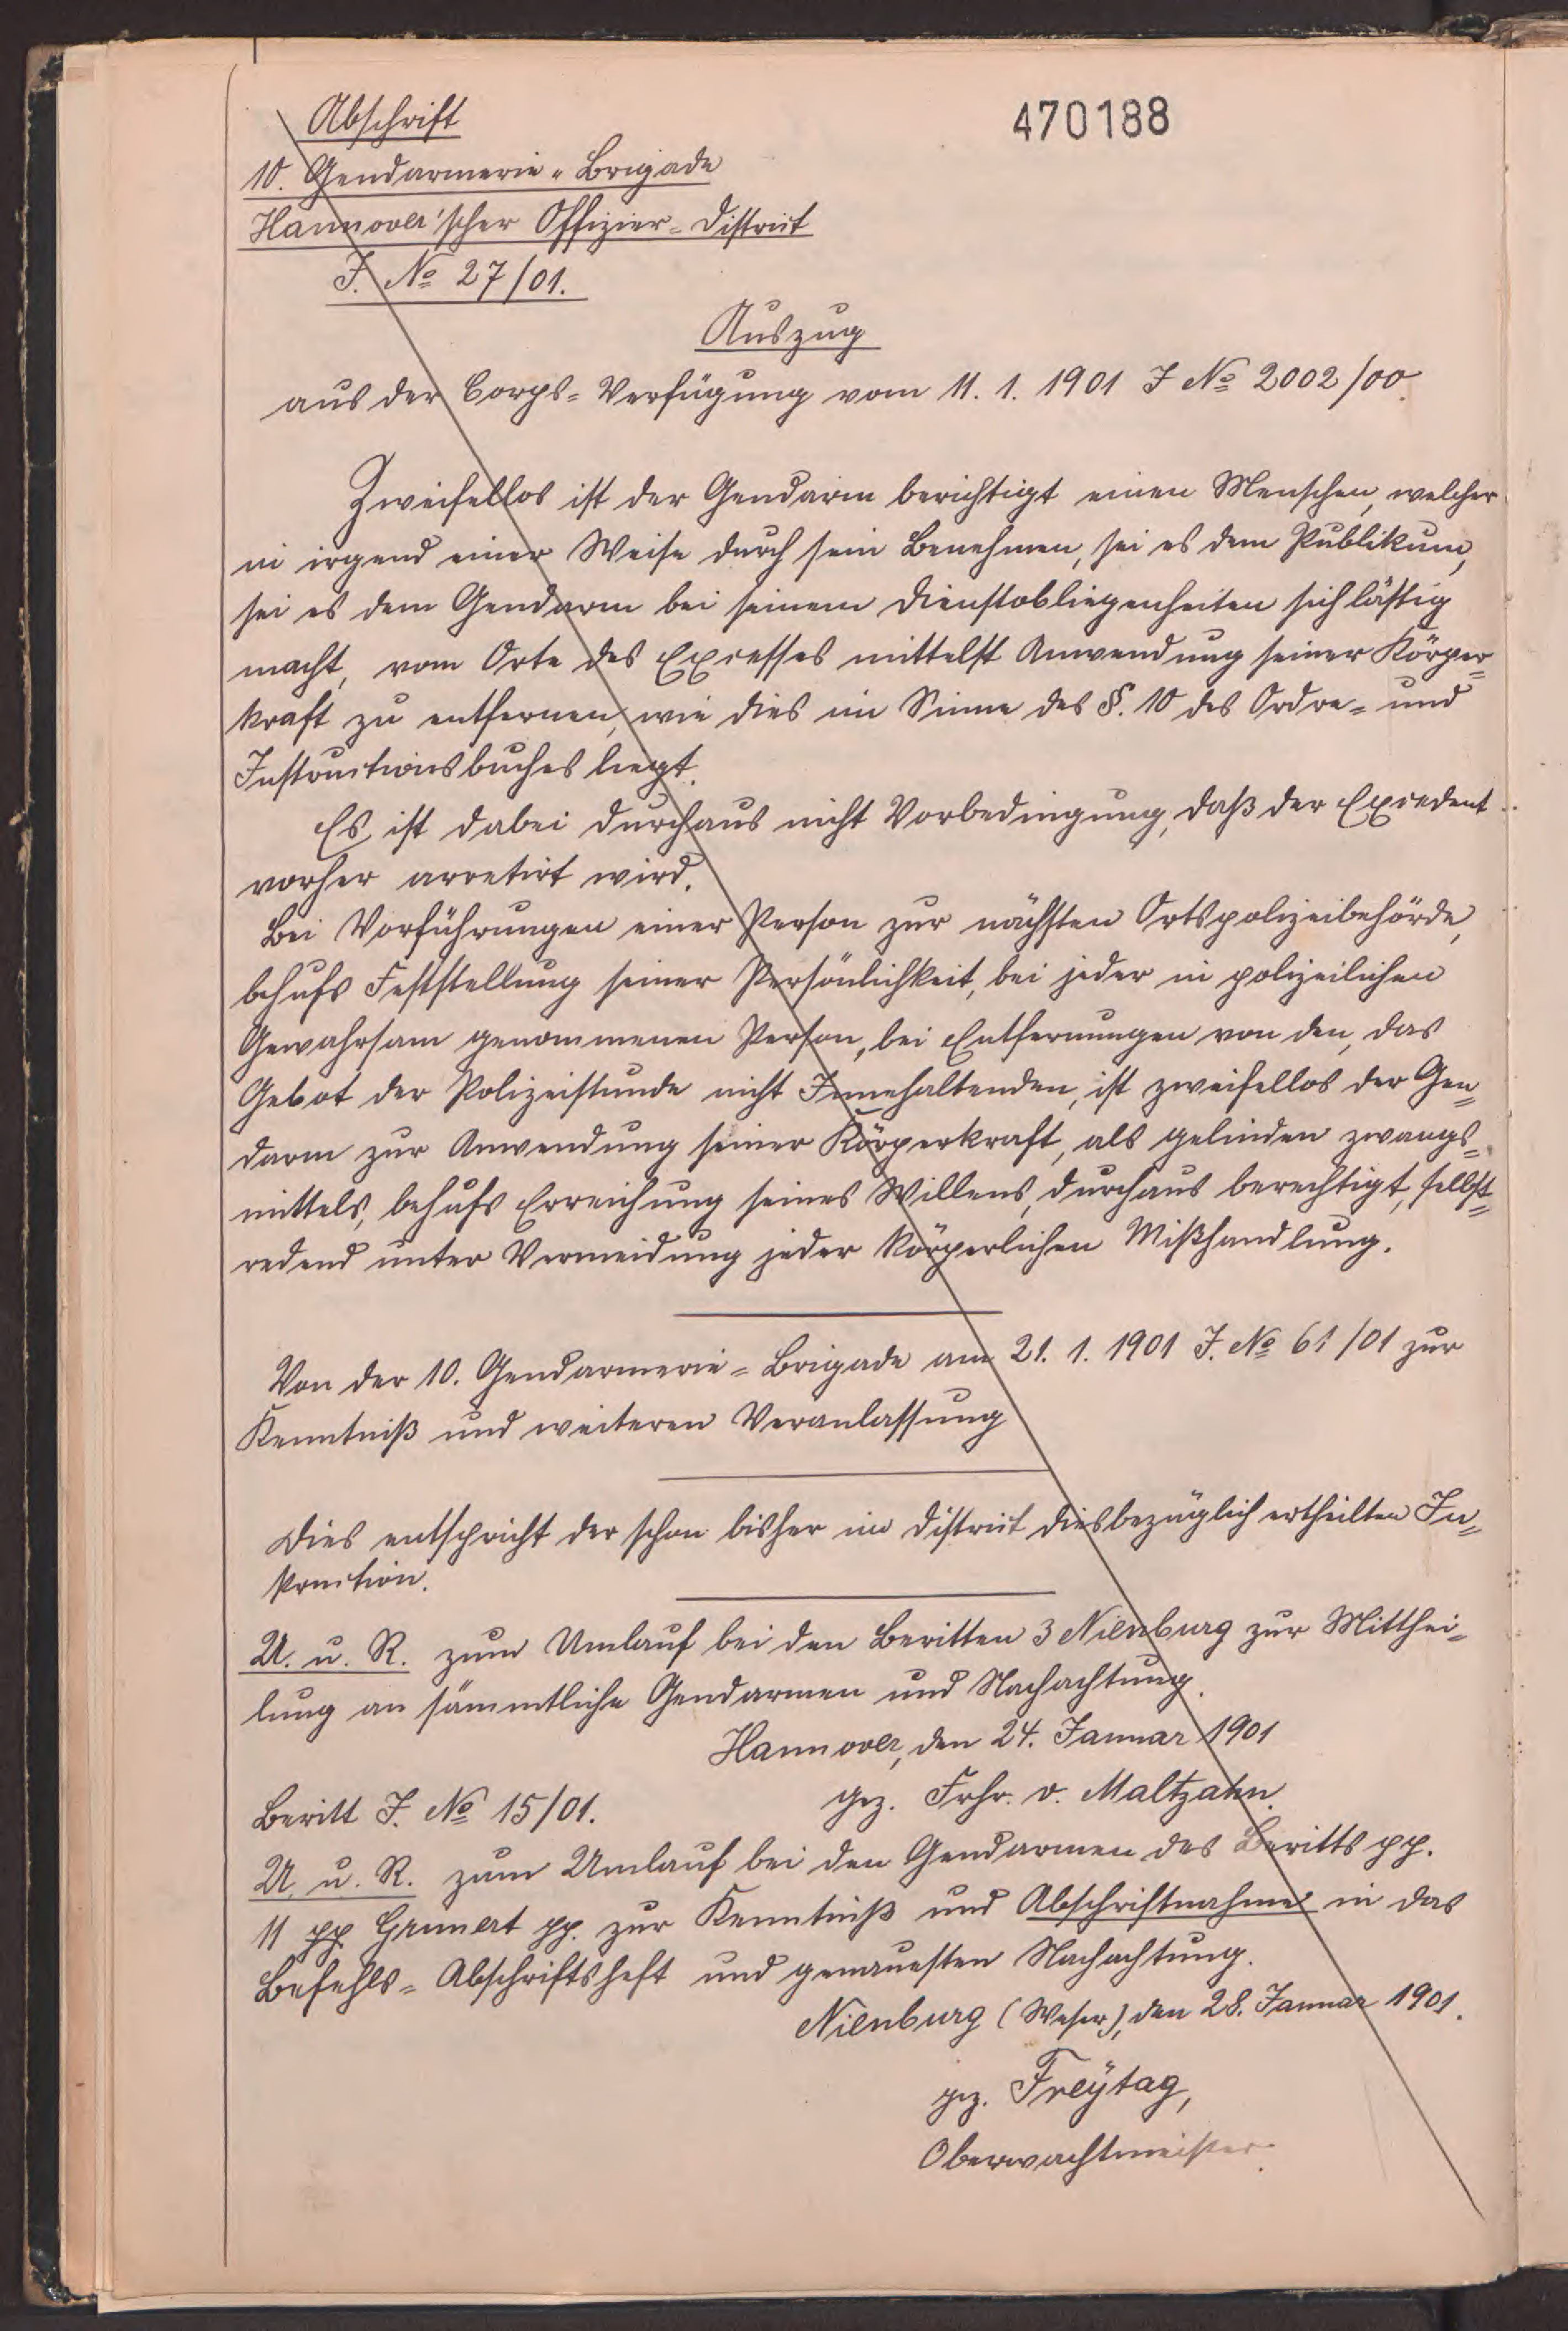 Abschrift
470188
10. Gendarmerie-Brigade
Hannover'scher Offizier-District
J. No 27/01.
Auszug
aus der Corps-Verfügung vom 11. 1. 1901 J No 2002/00.
Zweifellos ist der Gendarm berichtigt einen Menschen, welcher
in irgend einer Weise durch sein Benehmen, sei es dem Publikum,
sei es dem Gendarm bei seinem Dienstobliegenheiten sich lästig
macht, vom Orte des Excesses mittelst Anwendung seiner Körper-
kraft zu entfernen, wie dies im Sinne des §. 10 des Ordre- und
Instructionsbuches liegt.
Es ist dabei durchaus nicht Vorbedingung, daß der Excedent
vorher arretirt wird.
Bei Vorführungen einer Person zur nächsten Ortspolizeibehörde,
behufs Feststellung seiner Persönlichkeit, bei jeder in polizeilichen
Gewahrsam genommenen Person, bei Entfernungen von den, das
Gebot der Polizeistunde nicht Innehaltenden, ist zweifellos der Gen-
darm zur Anwendung seiner Körperkraft, als gelinden Zwangs-
mittels, behufs Erreichung seines Willens, durchaus berechtigt, selbst-
redend unter Vermeidung jeder körperlichen Mißhandlung.
Von der 10. Gendarmerie-Brigade am 21. 1. 1901 J. No 61/01 zur
Kenntniß und weiteren Veranlassung
Dies entspricht der schon bisher im District diesbezüglich ertheilten In-
struction.
U. u. R. zum Umlauf bei den Beritten 3 Nienburg zur Mitthei-
lung an sämmtliche Gendarmen und Nachachtung.
Hannover, den 24. Januar 1901
gez. Frhr. v. Maltzahn.
Beritt J. No 15/01.
U. u. R. zum Umlauf bei den Gendarmen des Beritts pp.
11 pp Grunert pp. zur Kenntniß und Abschriftnahme in das
Befehls-Abschriftsheft und genauesten Nachachtung.
Nienburg (Weser), den 28. Januar 1901.
gez. Freÿtag,
Oberwachtmeister.